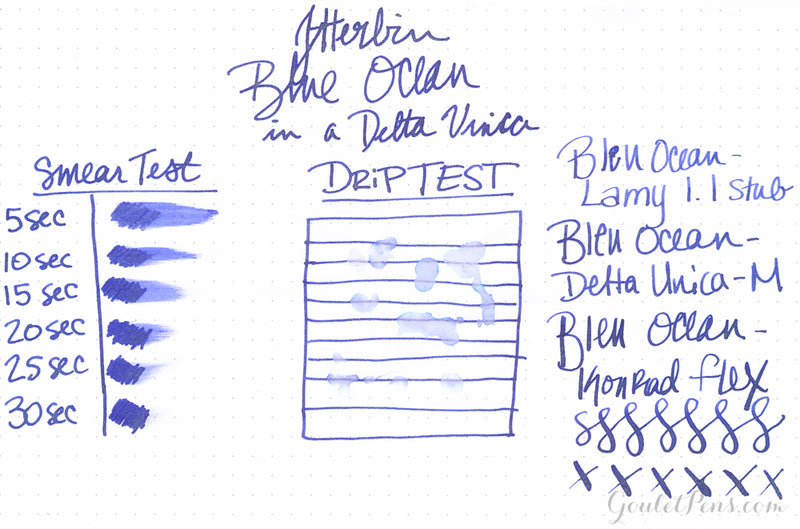 JHerbin
Blue Ocean
in a Delta Unica
Smear Test
5sec
10sec
15 sec
20 sec
25 sec
30 sec
DRiP TEST
Bleu Ocean-
Lamy 1.1 Stub
Bleu Ocean-
Delta Unica-M
Bleu Ocean-
Konrad flex
SSSSSSS
x x x x x x
GouletPens.com